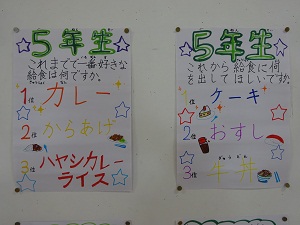 5年生
これまでで一番好きな
給食は何ですか。
1位 カレー
2位 からあげ
3位 ハヤシカレー
ライス
5年生
これから給食に何
を出してほしいですか
1位 ケーキ
2位 おすし
3位 牛丼